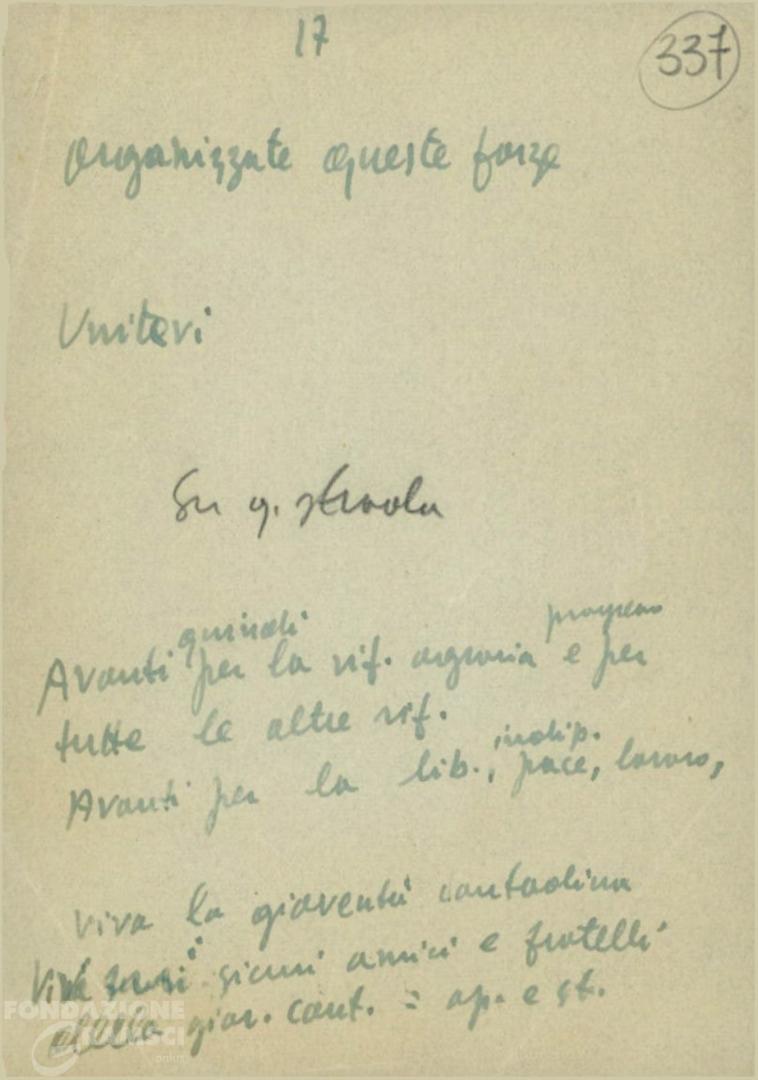 17
337
organizzate queste forze
Unitevi
Su q. strada
quindi progresso
Avanti per la rif. agraria e per
tutte le altre rif.
indip.
Avanti per la lib., pace, lavoro,
Viva la gioventù contadina
Viva i sicuri amici e fratelli
della giov. cont. = op. e st.
FONDAZIONE
GRAMSCI
onlus